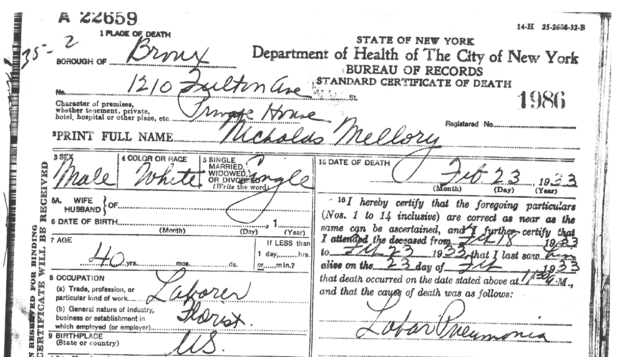 A 22659
14-H 25-2608-32-B
1 PLACE OF DEATH
STATE OF NEW YORK
Department of Health of The City of New York
BUREAU OF RECORDS
STANDARD CERTIFICATE OF DEATH
35-2
BOROUGH OF Bronx
No. 1210 Fulton Ave St.
1986
Character of premises,
whether tenement, private,
hotel, hospital or other place, etc. Private House
Registered No.
2 PRINT FULL NAME Nicholas Mellory
3 SEX Male
4 COLOR OR RACE White
5 SINGLE
MARRIED,
WIDOWED,
OR DIVORCED
(Write the word) Single
5A WIFE
HUSBAND } OF
6 DATE OF BIRTH
(Month) (Day) (Year)
7 AGE
40 yrs. mos. ds.
If LESS than
1 day, hrs.
or min.?
8 OCCUPATION
(a) Trade, profession, or
particular kind of work Laborer
(b) General nature of industry,
business or establishment in
which employed (or employer) Florist
9 BIRTHPLACE
(State or country) U.S.
15 DATE OF DEATH
Feb 23 1933
(Month) (Day) (Year)
16 I hereby certify that the foregoing particulars
(Nos. 1 to 14 inclusive) are correct as near as the
same can be ascertained, and I further certify that
I attended the deceased from Feb 18 1933
to Feb 23 1933 that I last saw him
alive on the 23 day of Feb 1933
that death occurred on the date stated above at M.,
and that the cause of death was as follows:
Lobar Pneumonia
RESERVED FOR BINDING
CERTIFICATE WILL BE RECEIVED